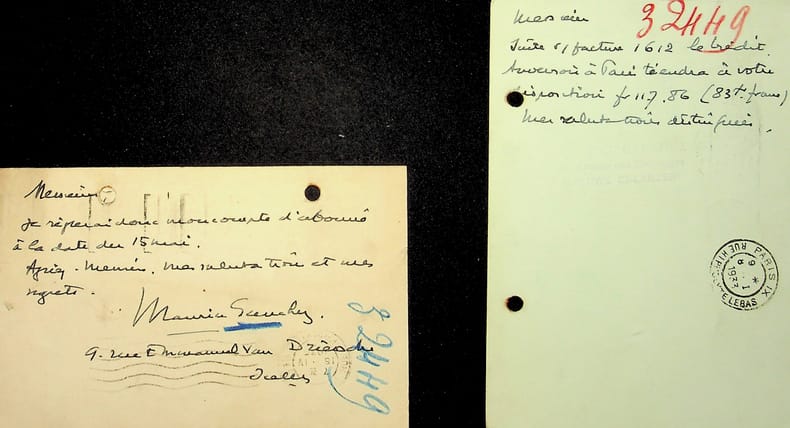 Messieurs
Je réglerai donc mon compte d'abonné
à la date du 15 mai.
Agréez, Messieurs, mes salutations et mes
regrets.
Maurice
9. rue Emmanuel Van Driessche
Ixelles
32449
Messieurs
32449
Suite s/ facture 1612 le Crédit
à Paris tiendra à votre
disposition fr 117.86 (83 f. francs)
Mes salutations distinguées.
PARIS IX
1933